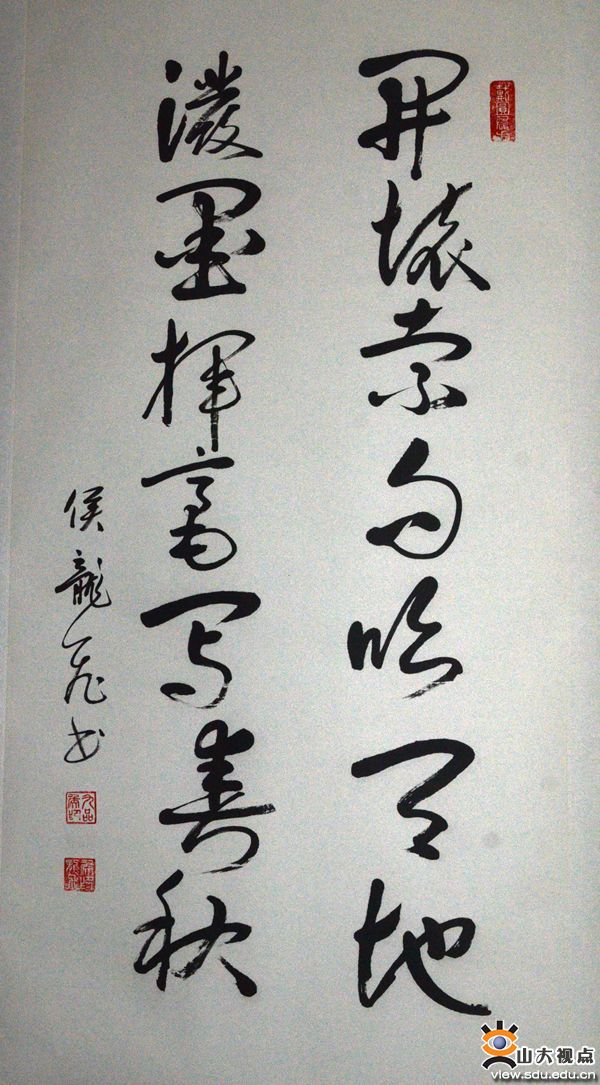 开怀索句吟天地
泼墨挥毫写春秋
侯龙飞书
山大视点
view.sdu.edu.cn